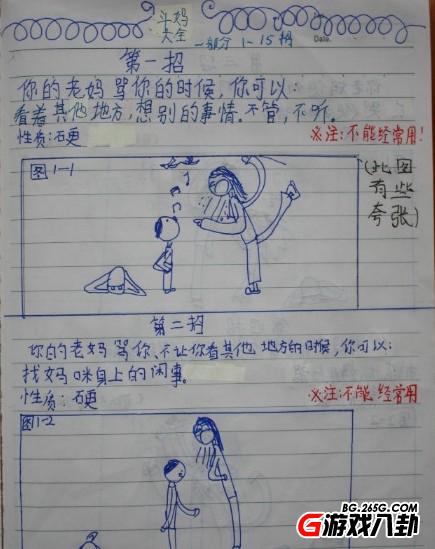 斗妈
大全
一部分 1-15招
Date.
第一招
你的老妈骂你的时候,你可以:
看着其他地方,想别的事情。不管,不听。
性质:石更
※注:不能经常用!
图1-1
(此图
有些
夸张)
第二招
你的老妈骂你、不让你看其他地方的时候,你可以:
找妈咪身上的闲事。
性质:石更
※注:不能经常用
图1-2
BG.265G.COM
G游戏八卦